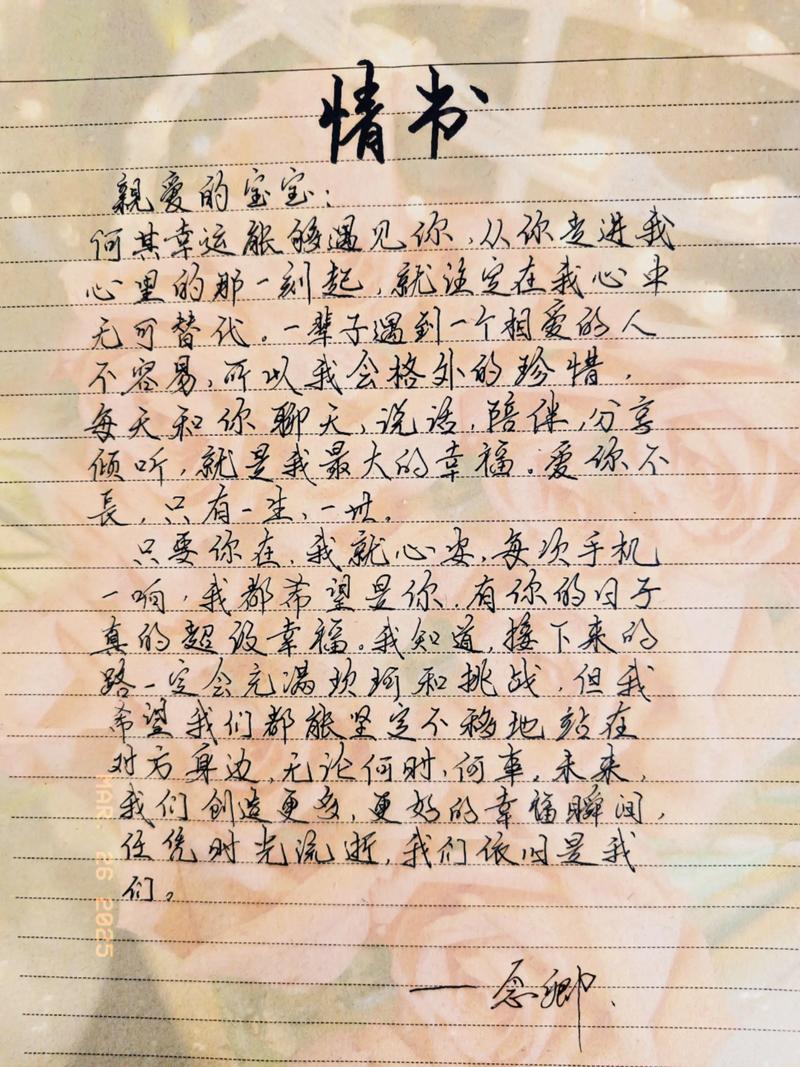 情书
亲爱的宝宝：
何其幸运能够遇见你，从你走进我
心里的那一刻起，就注定在我心中
无可替代。一辈子遇到一个相爱的人
不容易，所以我会格外的珍惜，
每天和你聊天、说话，陪伴，分享
倾听，就是我最大的幸福。爱你不
長，只有一生、一世。
只要你在，我就心安，每次手机
一响，我都希望是你，有你的日子
真的超级幸福。我知道，接下来的
路一定会充满坎坷和挑战，但我
希望我们都能坚定不移地站在
对方身边，无论何时，何事。未来，
我们创造更多，更好的幸福瞬间，
任凭时光流逝，我们依旧是我
们。
——念卿.
MAR 26 2025